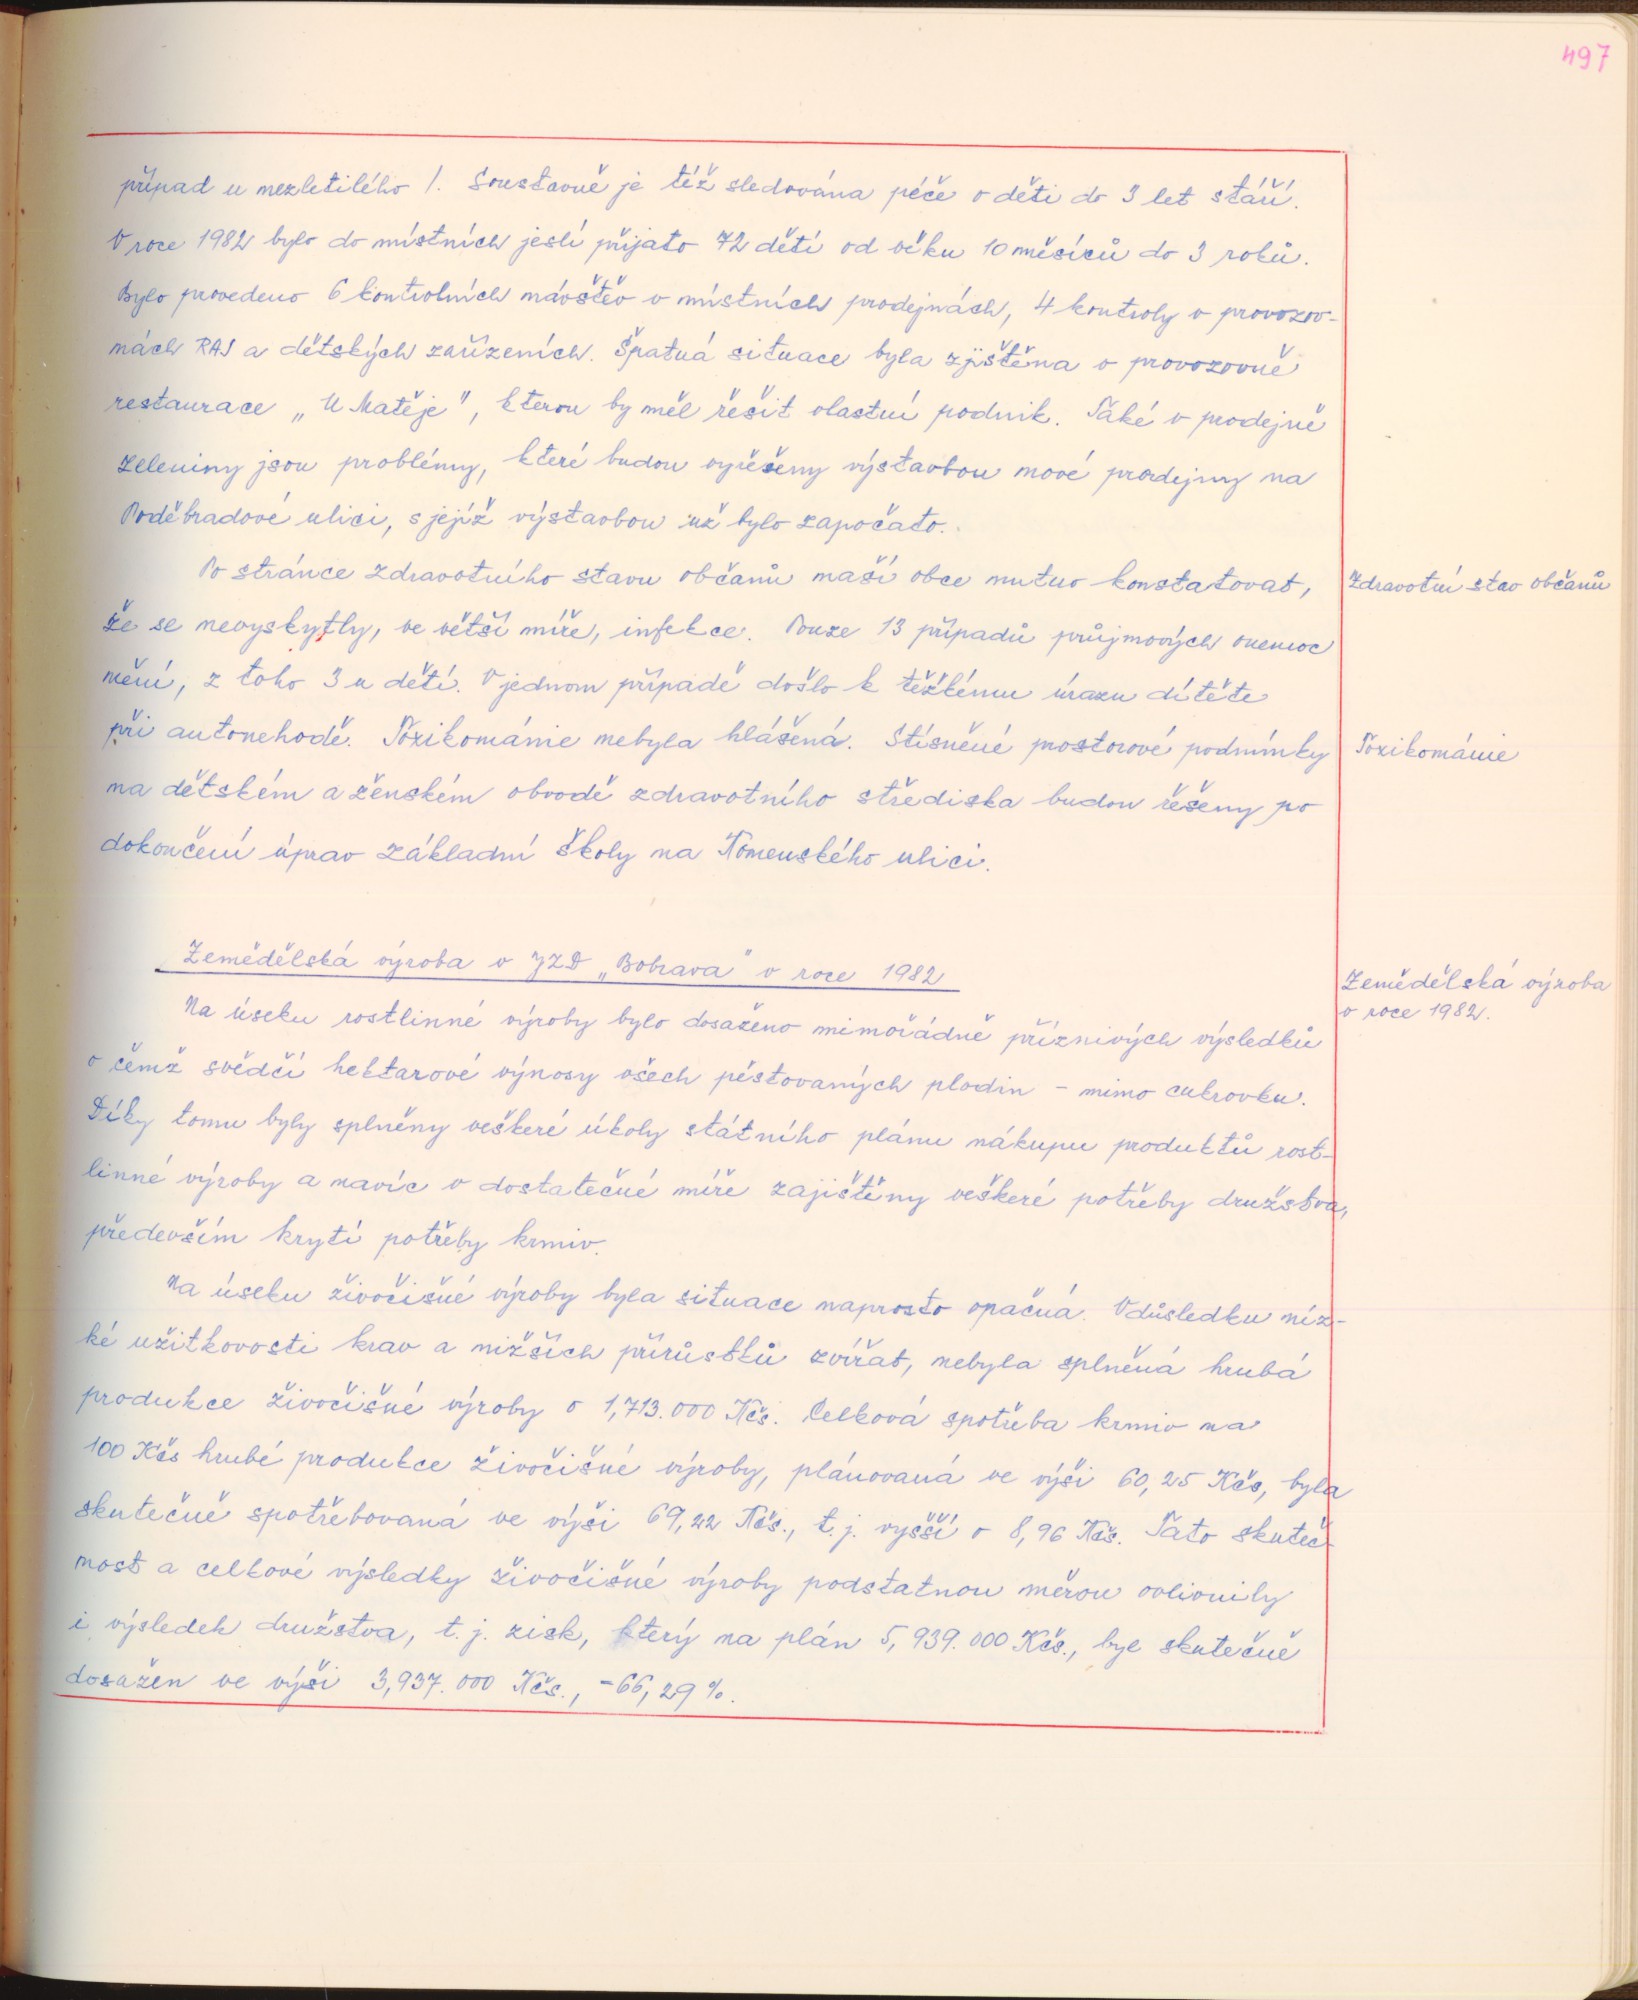 497
případ u nezletilého /. Soustavně je též sledována péče o děti do 3 let stáří.
V roce 1982 bylo do místních jeslí přijato 72 dětí od věku 10 měsíců do 3 roků.
Bylo provedeno 6 kontrolních návštěv v místních prodejnách, 4 kontroly v provozov-
nách RAJ a dětských zařízeních. Špatná situace byla zjištěna v provozovně
restaurace „U Matěje", kterou by měl řešit vlastní podnik. Také v prodejně
zeleniny jsou problémy, které budou vyřešeny výstavbou nové prodejny na
Poděbradově ulici, s jejíž výstavbou už bylo započato.
Po stránce zdravotního stavu občanů naší obce nutno konstatovat,
Zdravotní stav občanů
že se nevyskytly, ve větší míře, infekce. Pouze 13 případů průjmových onemoc
nění, z toho 3 u dětí. V jednom případě došlo k těžkému úrazu dítěte
při autonehodě. Toxikománie nebyla hlášená. Stísněné prostorové podmínky
Toxikománie
na dětském a ženském obvodě zdravotního střediska budou řešeny po
dokončení úprav základní školy na Komenského ulici.
Zemědělská výroba v JZD „Bobrava" v roce 1982
Zemědělská výroba
v roce 1982.
Na úseku rostlinné výroby bylo dosaženo mimořádně příznivých výsledků
o čemž svědčí hektarové výnosy všech pěstovaných plodin - mimo cukrovku.
Díky tomu byly splněny veškeré úkoly státního plánu nákupu produktů rost-
linné výroby a navíc v dostatečné míře zajištěny veškeré potřeby družstva,
především krytí potřeby krmiv.
Na úseku živočišné výroby byla situace naprosto opačná. V důsledku níz-
ké užitkovosti krav a nižších přírůstků zvířat, nebyla splněná hrubá
produkce živočišné výroby o 1,713.000 Kčs. Celková spotřeba krmiv na
100 Kčs hrubé produkce živočišné výroby, plánovaná ve výši 60,25 Kčs, byla
skutečně spotřebovaná ve výši 69,22 Kčs., t.j. vyšší o 8,96 Kčs. Tato skuteč-
nost a celkové výsledky živočišné výroby podstatnou měrou ovlivnily
i výsledek družstva, t.j. zisk, který na plán 5,939.000 Kčs., byl skutečně
dosažen ve výši 3,937.000 Kčs., -66,29%.